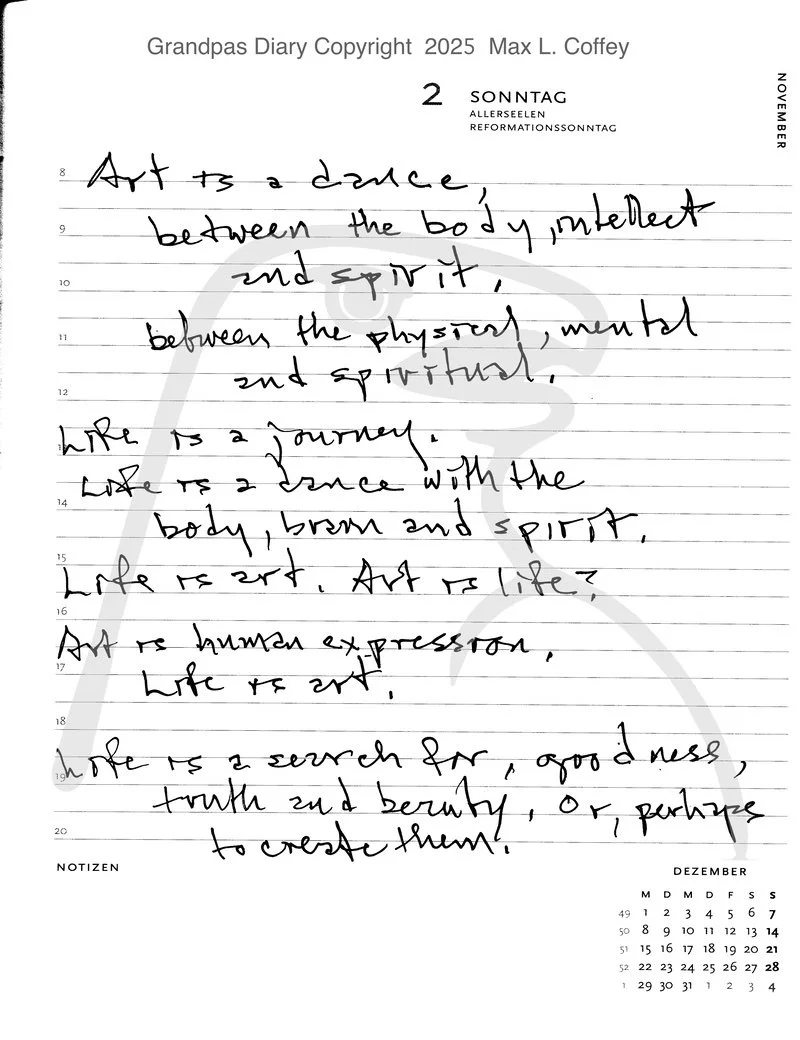 Grandpas Diary Copyright 2025 Max L. Coffey
2 SONNTAG
ALLERSEELEN
REFORMATIONSSONNTAG
NOVEMBER
8 Art is a dance,
9 between the body, intellect
10 and spirit,
11 between the physical, mental
12 and spiritual.
13 Life is a journey.
Life is a dance with the
14 body, brain and spirit.
15 Life is art. Art is life?
16 Art is human expression,
17 Life is art.
18
19 Life is a search for, goodness,
truth and beauty, Or, perhaps
20 to create them!
NOTIZEN
DEZEMBER
M D M D F S S
49 1 2 3 4 5 6 7
50 8 9 10 11 12 13 14
51 15 16 17 18 19 20 21
52 22 23 24 25 26 27 28
1 29 30 31 1 2 3 4